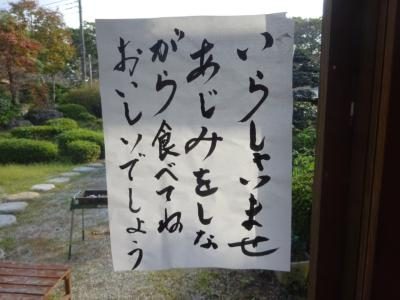 いらしゃいませ
あじみをしな
がら食べてね
おいしいでしょう